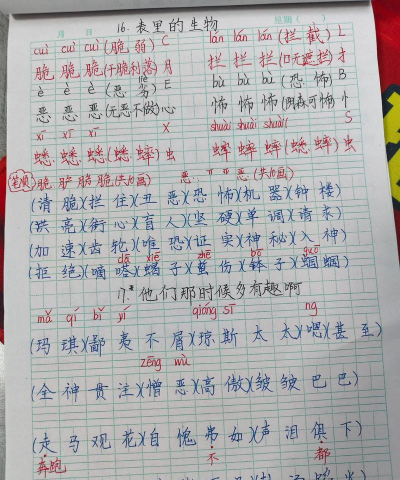 月 日 星期（ ）
16. 表里的生物
cuì cuì cuì (脆 弱) C lán lán lán (拦 截) L
脆 脆 脆 (干脆利落) 月 拦 拦 拦 (一无遮拦) 扌
è è è (恶 劣) E bù bù bù (恐 怖) B
liè
恶 恶 恶 (无恶不做) 心 怖 怖 怖 (阴森可怖) 忄
xī xī xī X shuài shuài shuài S
蟋 蟋 蟋 (蟋 蟀) 虫 蟀 蟀 蟀 (蟋 蟀) 虫
笔顺 脆 脆 脆 脆 (共10画) 恶 (共10画)
(清 脆)(拦 住)(丑 恶)(恐 怖)(机 器)(钟 楼)
(洪 亮)(街 心)(盲 人)(坚 硬)(单 调)(请 求)
(加 速)(齿 轮)(唯 恐)(证 实)(神 秘)(入 神)
dā xiē zhē bō guō
(拒 绝)(嘀 嗒)(蝎 子)(蜇 伤)(钵 子)(蝈 蝈)
17.* 他们那时候多有趣啊
mǎ qí bǐ yí qióng sī ng
(玛 琪)(鄙 夷 不 屑)(琼 斯 太 太)(嗯)(甚 至)
zēng wù
(全 神 贯 注)(憎 恶)(高 傲)(皱 皱 巴 巴)
(走 马 观 花)(自 愧 弗 如)(声 泪 俱 下)
奔跑 不 都